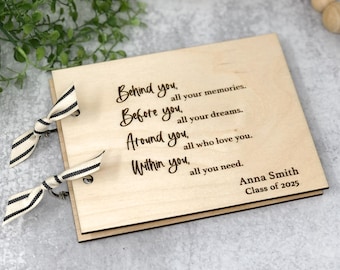 Behind you, all your memories.
Before you, all your dreams.
Around you, all who love you.
Within you, all you need.
Anna Smith
Class of 2025